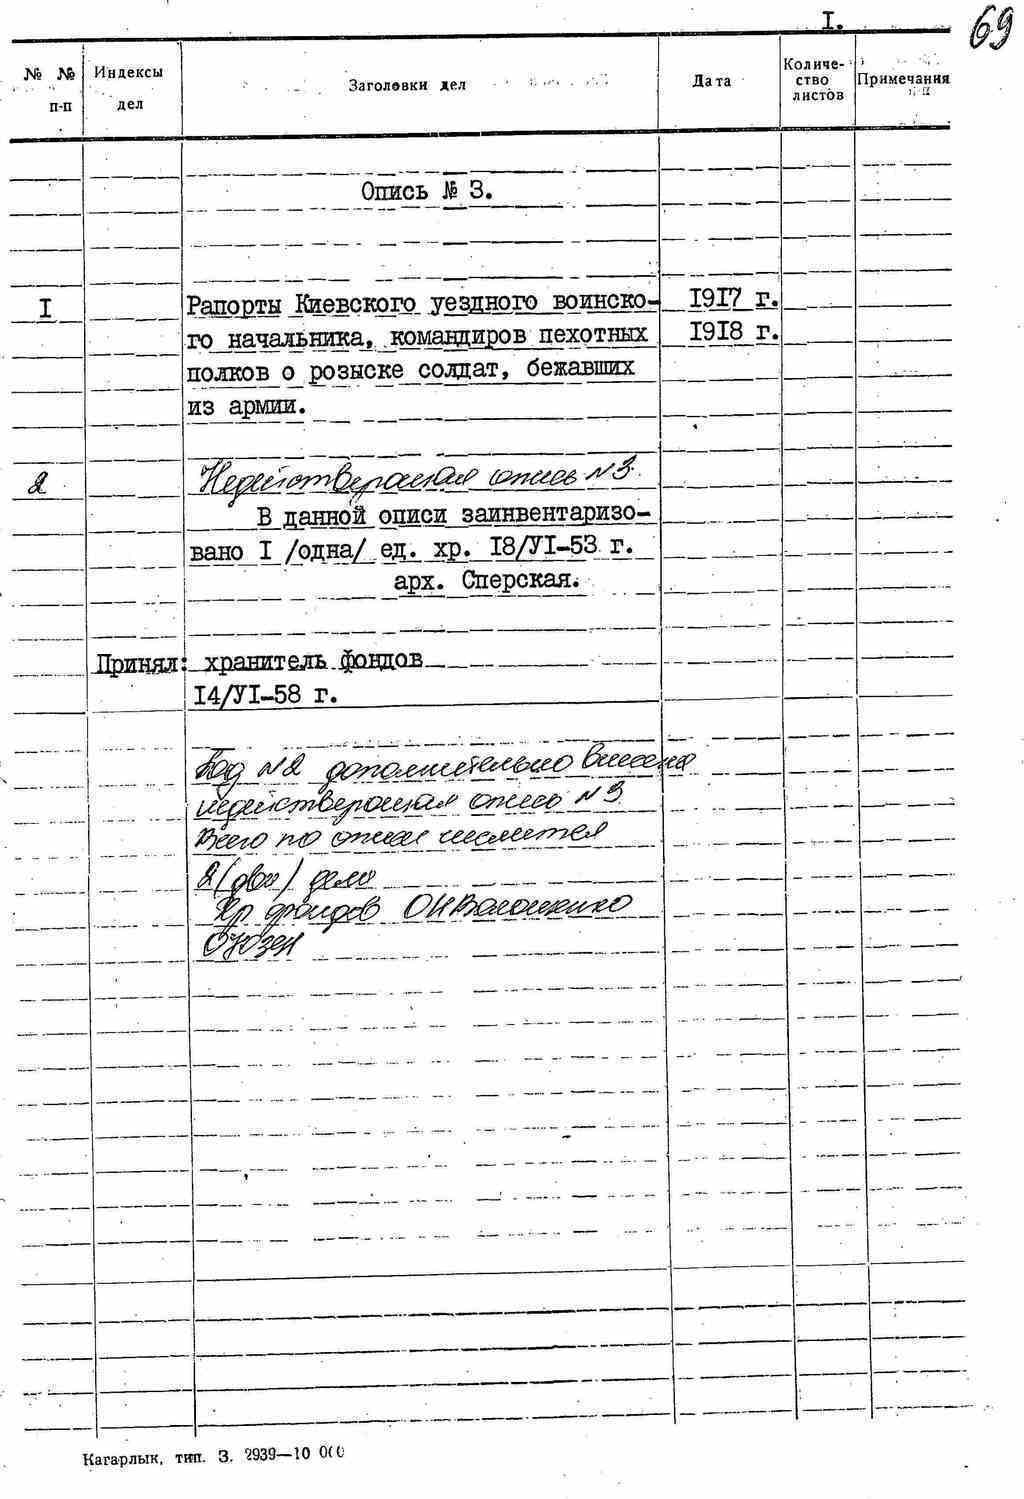 I.
69
№ № п-п
Индексы дел
Заголовки дел
Дата
Количе-
ство
листов
Примечания
Опись № 3.
I Рапорты Киевского уездного воинско- 1917 г.
го начальника, командиров пехотных 1918 г.
полков о розыске солдат, бежавших
из армии.
2 Недействующая опись № 3.
В данной описи заинвентаризо-
вано I /одна/ ед. хр. I8/УI-53 г.
арх. Сперская.
Принял: хранитель фондов
I4/УI-58 г.
Под № 2 дополнительно внесена
недействующая опись № 3
Всего по описи числится
2 (два) дело
Хр фондов
Кагарлык, тип. З. 2939—10 000